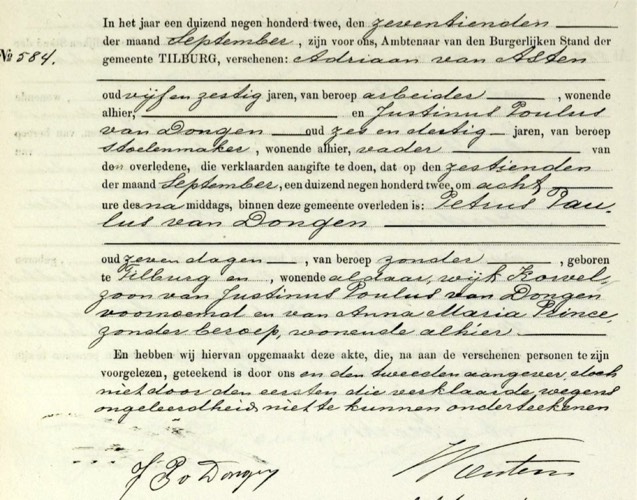 In het jaar een duizend negen honderd twee, den zeventienden
der maand September, zijn voor ons, Ambtenaar van den Burgerlijken Stand der
No 584. gemeente TILBURG, verschenen: Adriaan van Asten
oud vijf en zestig jaren, van beroep arbeider, wonende
alhier, en Justinus Poulus
van Dongen oud zes en dertig jaren, van beroep
stoelenmaker, wonende alhier, vader van
den overledene, die verklaarden aangifte te doen, dat op den zestienden
der maand September, een duizend negen honderd twee, om acht
ure des na middags, binnen deze gemeente overleden is: Petrus Pau-
lus van Dongen
oud zeven dagen, van beroep zonder, geboren
te Tilburg en, wonende aldaar, wijk Korvel,
zoon van Justinus Poulus van Dongen
voornoemd en van Anna Maria Prince,
zonder beroep, wonende alhier.
En hebben wij hiervan opgemaakt deze akte, die, na aan de verschenen personen te zijn
voorgelezen, geteekend is door ons en den tweeden aangever, doch
niet door den eersten die verklaarde, wegens
ongeleerdheid niet te kunnen onderteekenen
J P v Dongen